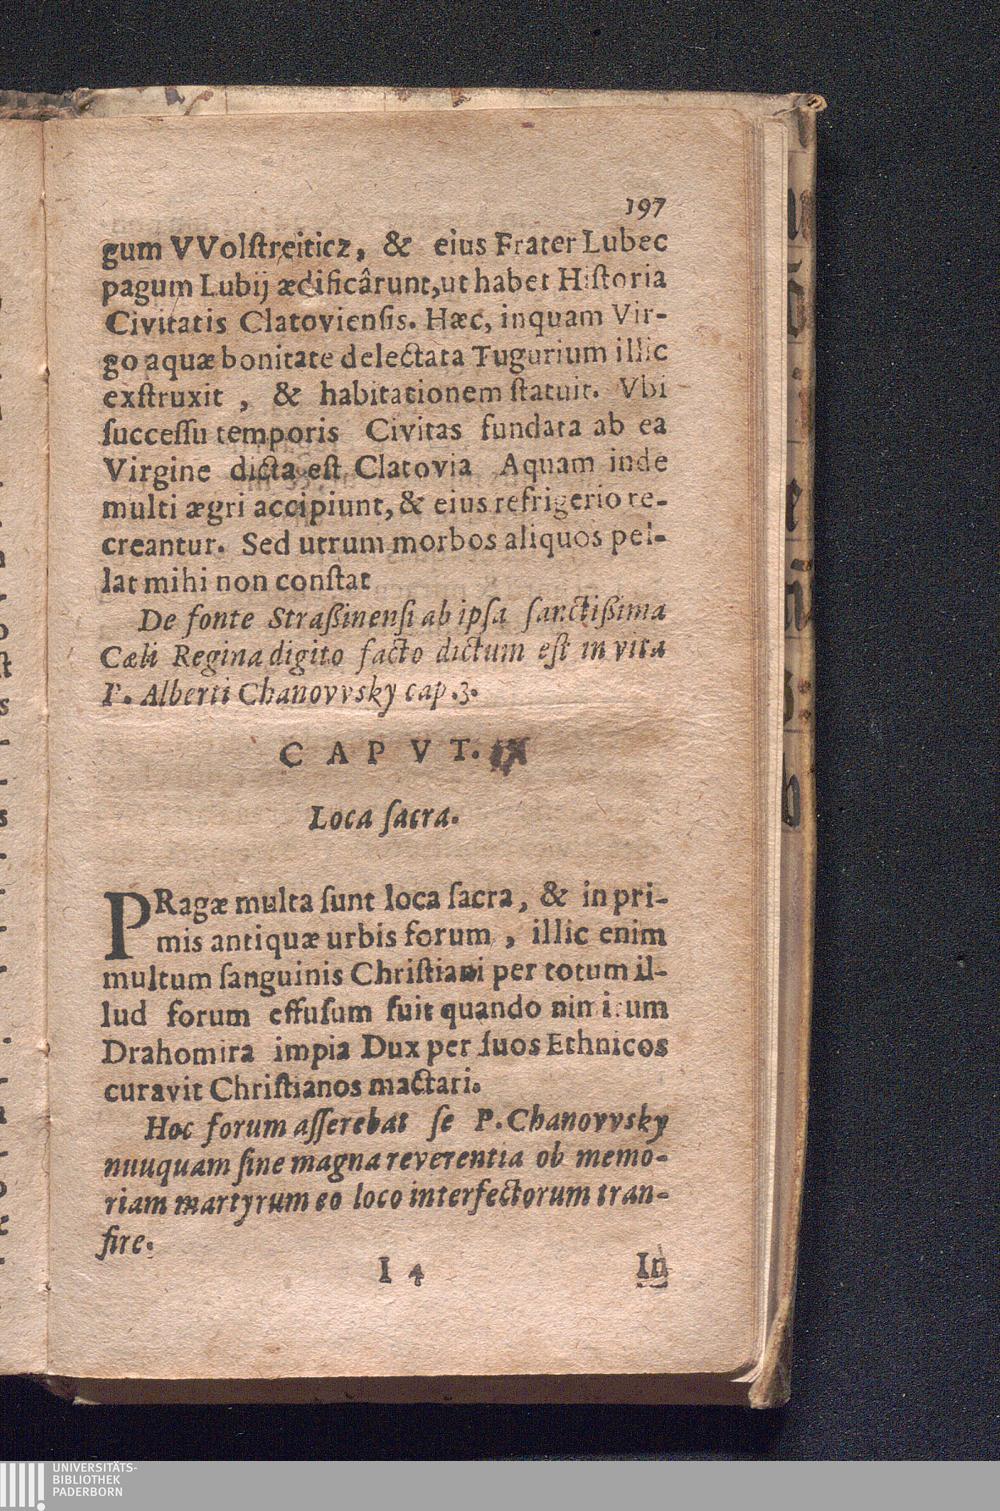 197
gum VVolſtreiticz, & eius Frater Lubec
pagum Lubij ædificârunt, ut habet Hiſtoria
Civitatis Clatovienſis. Hæc, inquam Vir-
go aquæ bonitate delectata Tugurium illic
exſtruxit, & habitationem ſtatuit. Vbi
ſucceſſu temporis Civitas fundata ab ea
Virgine dicta eſt Clatovia Aquam inde
multi ægri accipiunt, & eius refrigerio re-
creantur. Sed utrum morbos aliquos pel-
lat mihi non conſtat
De fonte Straßinenſi ab ipſa ſanctißima
Cæli Regina digito facto dictum eſt in vita
P. Alberti Chanovvsky cap. 3.
CAPVT. IX
Loca ſacra.
PRagæ multa ſunt loca ſacra, & in pri-
mis antiquæ urbis forum, illic enim
multum ſanguinis Chriſtiani per totum il-
lud forum effuſum fuit quando nimirum
Drahomira impia Dux per ſuos Ethnicos
curavit Chriſtianos mactari.
Hoc forum aſſerebat ſe P. Chanovvsky
nuuquam ſine magna reverentia ob memo-
riam martyrum eo loco interfectorum tran-
ſire.
I 4 In
UNIVERSITÄTS-
BIBLIOTHEK
PADERBORN